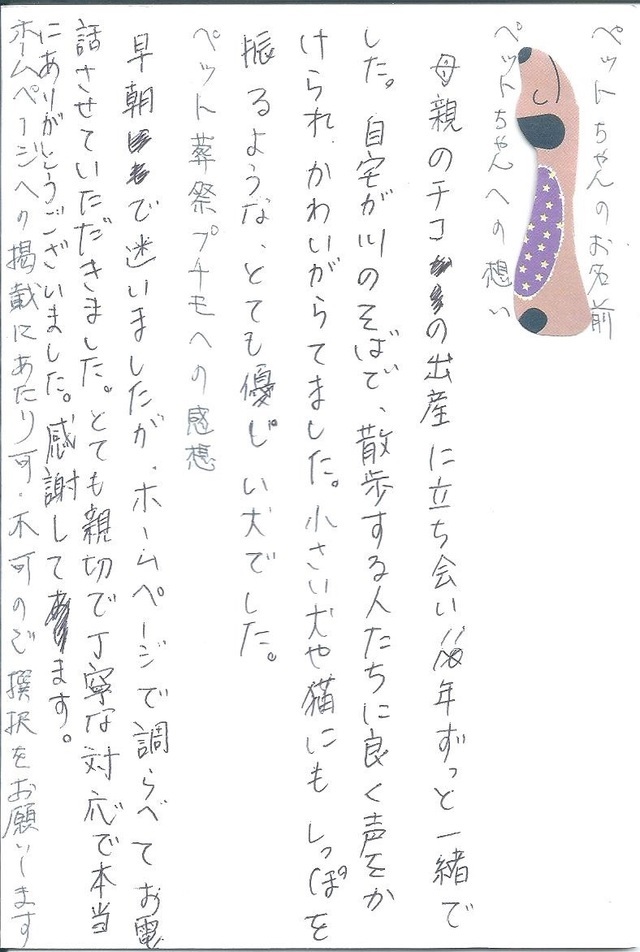 ペットちゃんのお名前
ペットちゃんへの想い
母親のチコの出産に立ち会い 年ずっと一緒で
した。自宅が川のそばで、散歩する人たちに良く声をか
けられ、かわいがらてました。小さい犬や猫にも しっぽを
振るような、とても優しい犬でした。
ペット葬祭プチモへの感想
早朝で迷いましたが、ホームページで調らべて お電
話させていただきました。とても親切で丁寧な対応で本当
にありがとうございました。感謝してます。
ホームページへの掲載にあたり可・不可のご撰択をお願いします